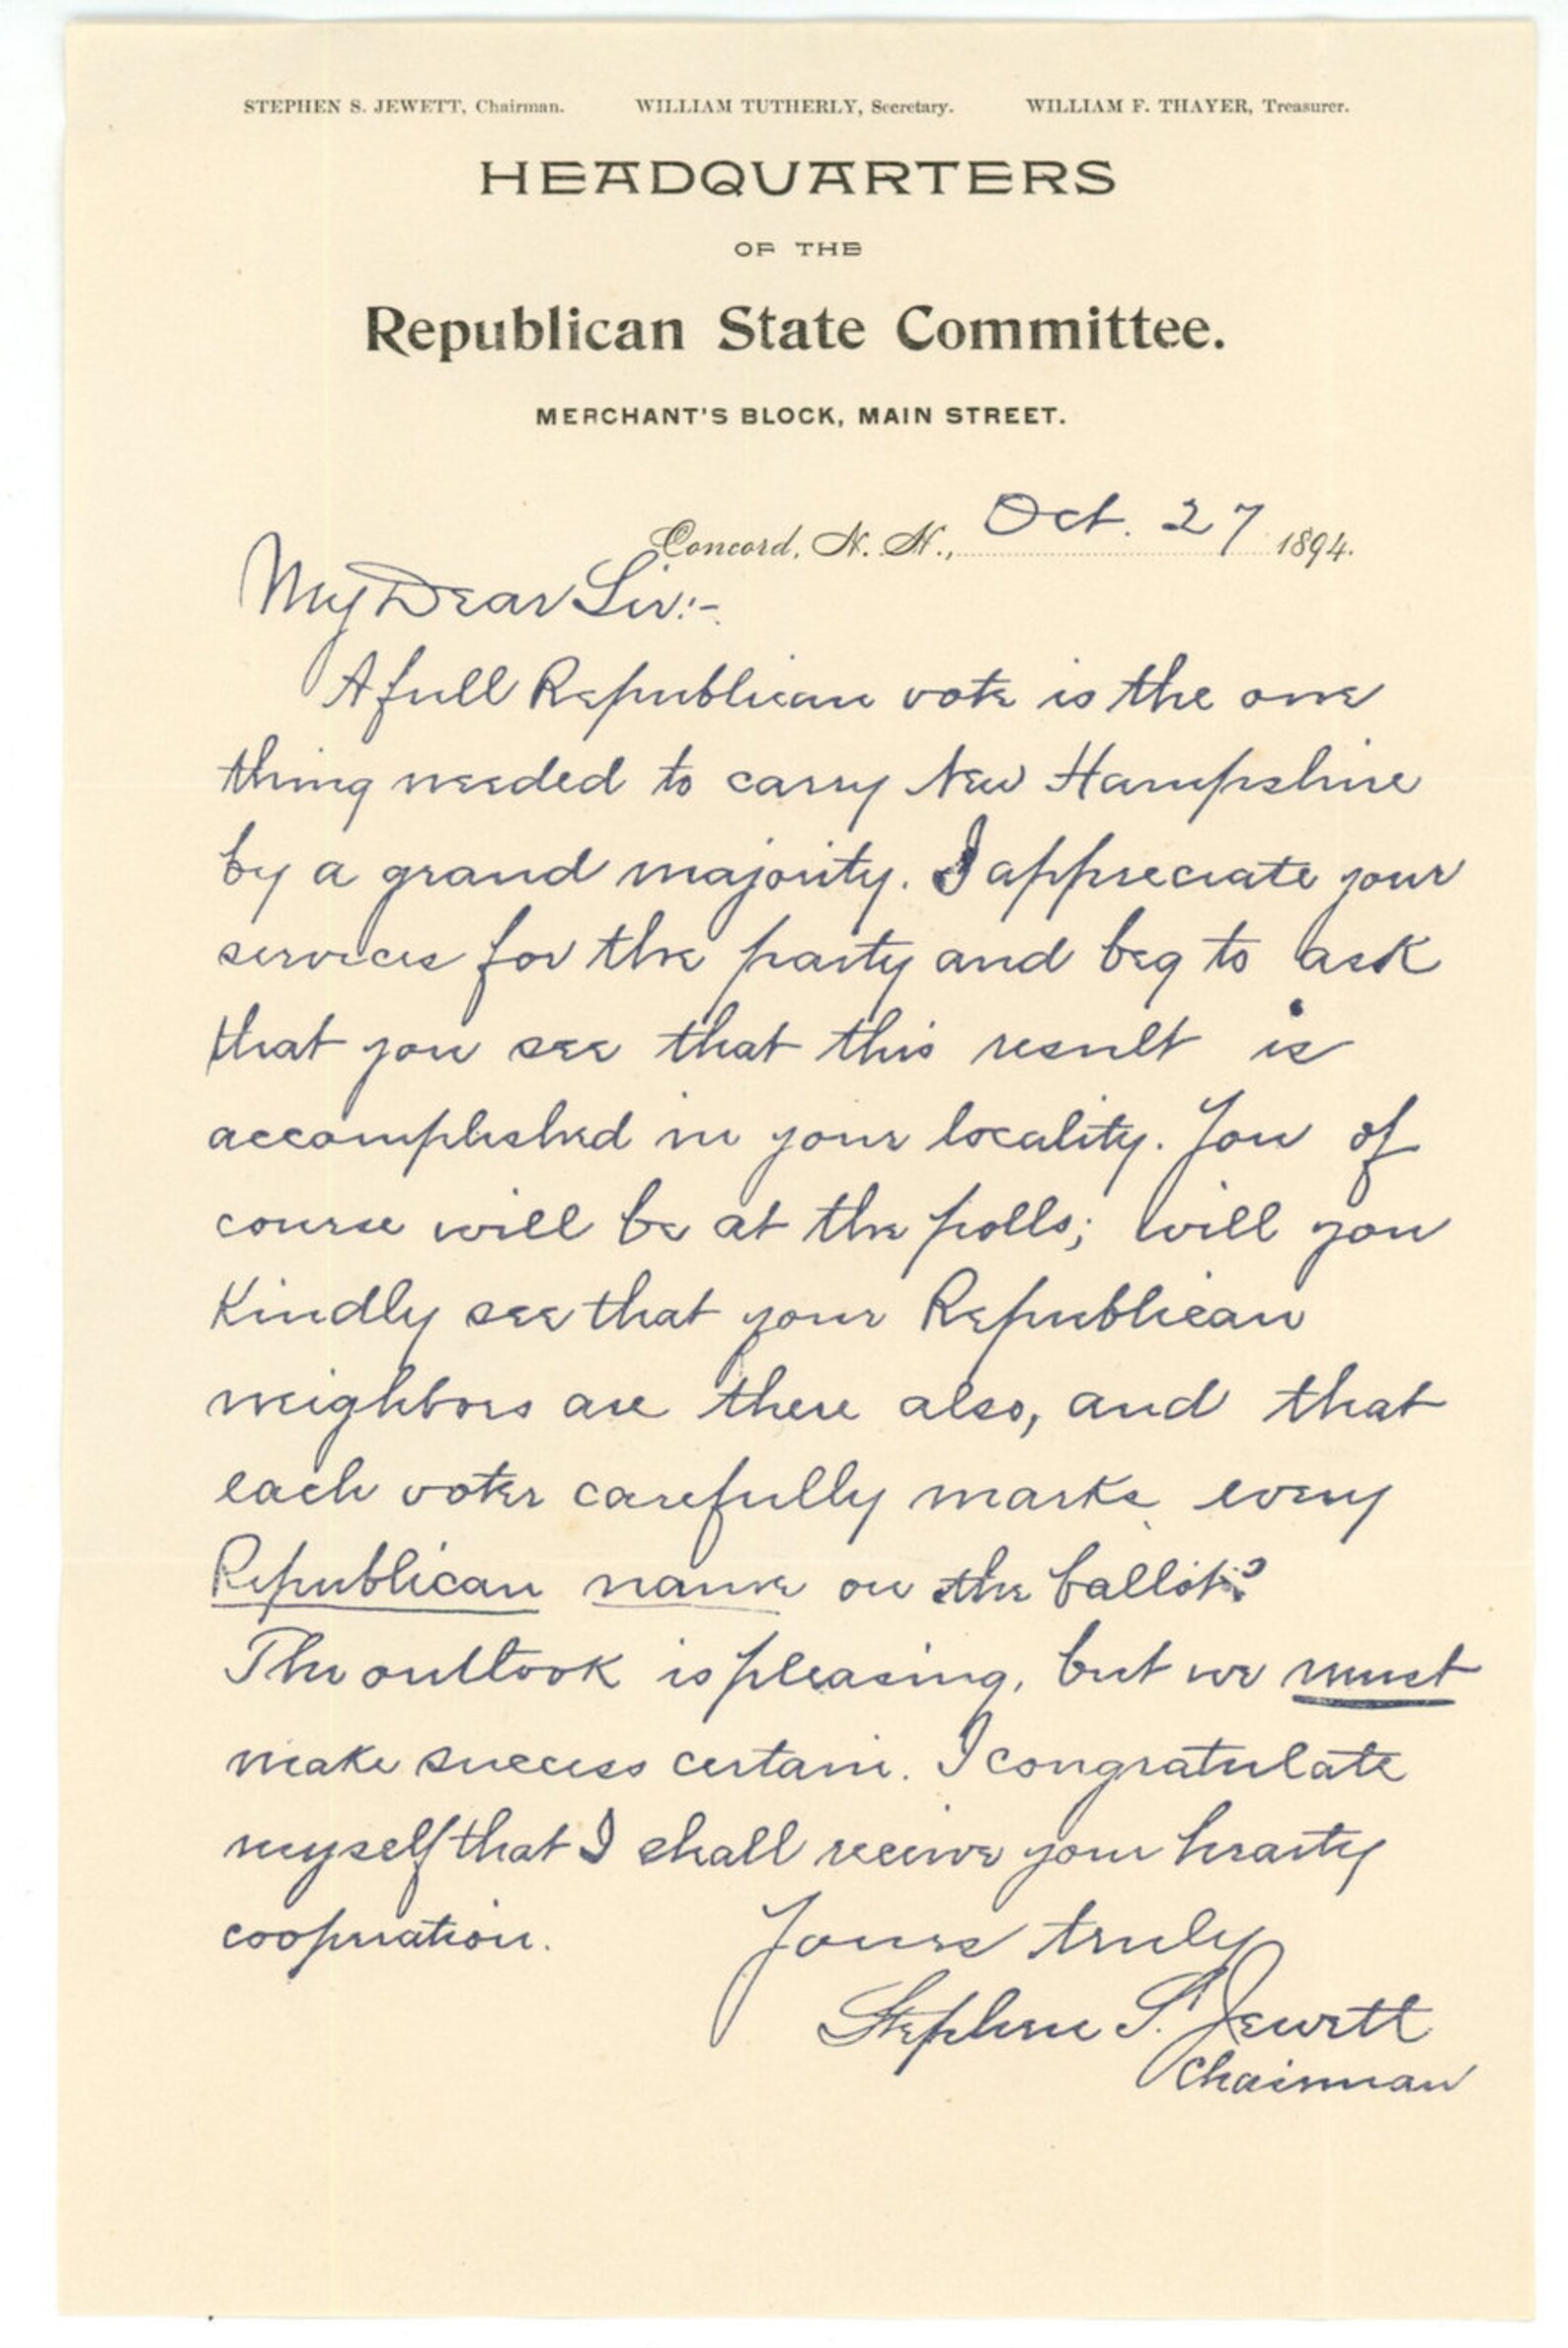 STEPHEN S. JEWETT, Chairman. WILLIAM TUTHERLY, Secretary. WILLIAM F. THAYER, Treasurer.
HEADQUARTERS
OF THE
Republican State Committee.
MERCHANT'S BLOCK, MAIN STREET.
Concord, N. H., Oct. 27 1894.
My Dear Sir:-
A full Republican vote is the one
thing needed to carry New Hampshire
by a grand majority. I appreciate your
services for the party and beg to ask
that you see that this result is
accomplished in your locality. You of
course will be at the polls; will you
kindly see that your Republican
neighbors are there also, and that
each voter carefully marks every
Republican name on the ballot?
The outlook is pleasing, but we must
make success certain. I congratulate
myself that I shall receive your hearty
cooperation. Yours truly
Stephen S. Jewett
Chairman